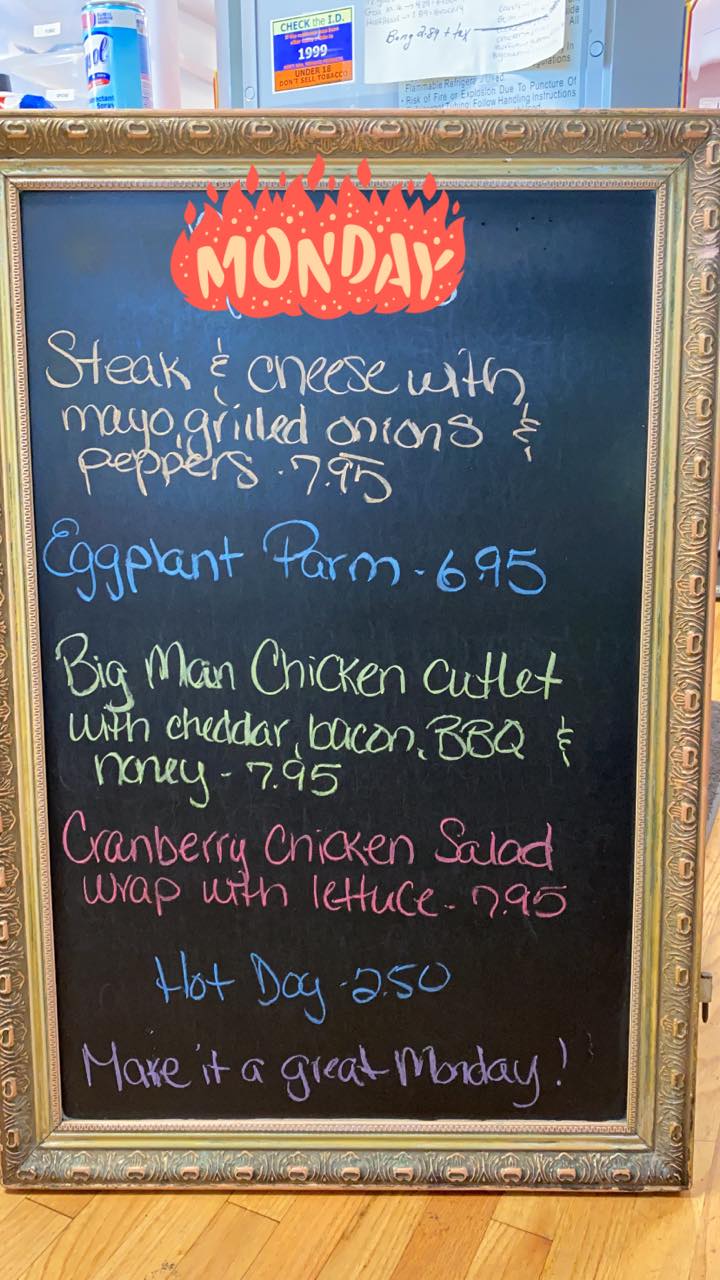 CHECK the I.D.
1999
UNDER 18
DON'T SELL TOBACCO
Bang 2.89 + tax
Flammable Refrigerant Used.
- Risk of Fire or Explosion Due To Puncture Of
Follow Handling Instructions
MONDAY
Steak & cheese with
mayo, grilled onions &
peppers - 7.95
Eggplant Parm - 6.95
Big Man Chicken cutlet
with cheddar, bacon, BBQ &
honey - 7.95
Cranberry Chicken Salad
wrap with lettuce - 7.95
Hot Dog - 2.50
Make it a great Monday!